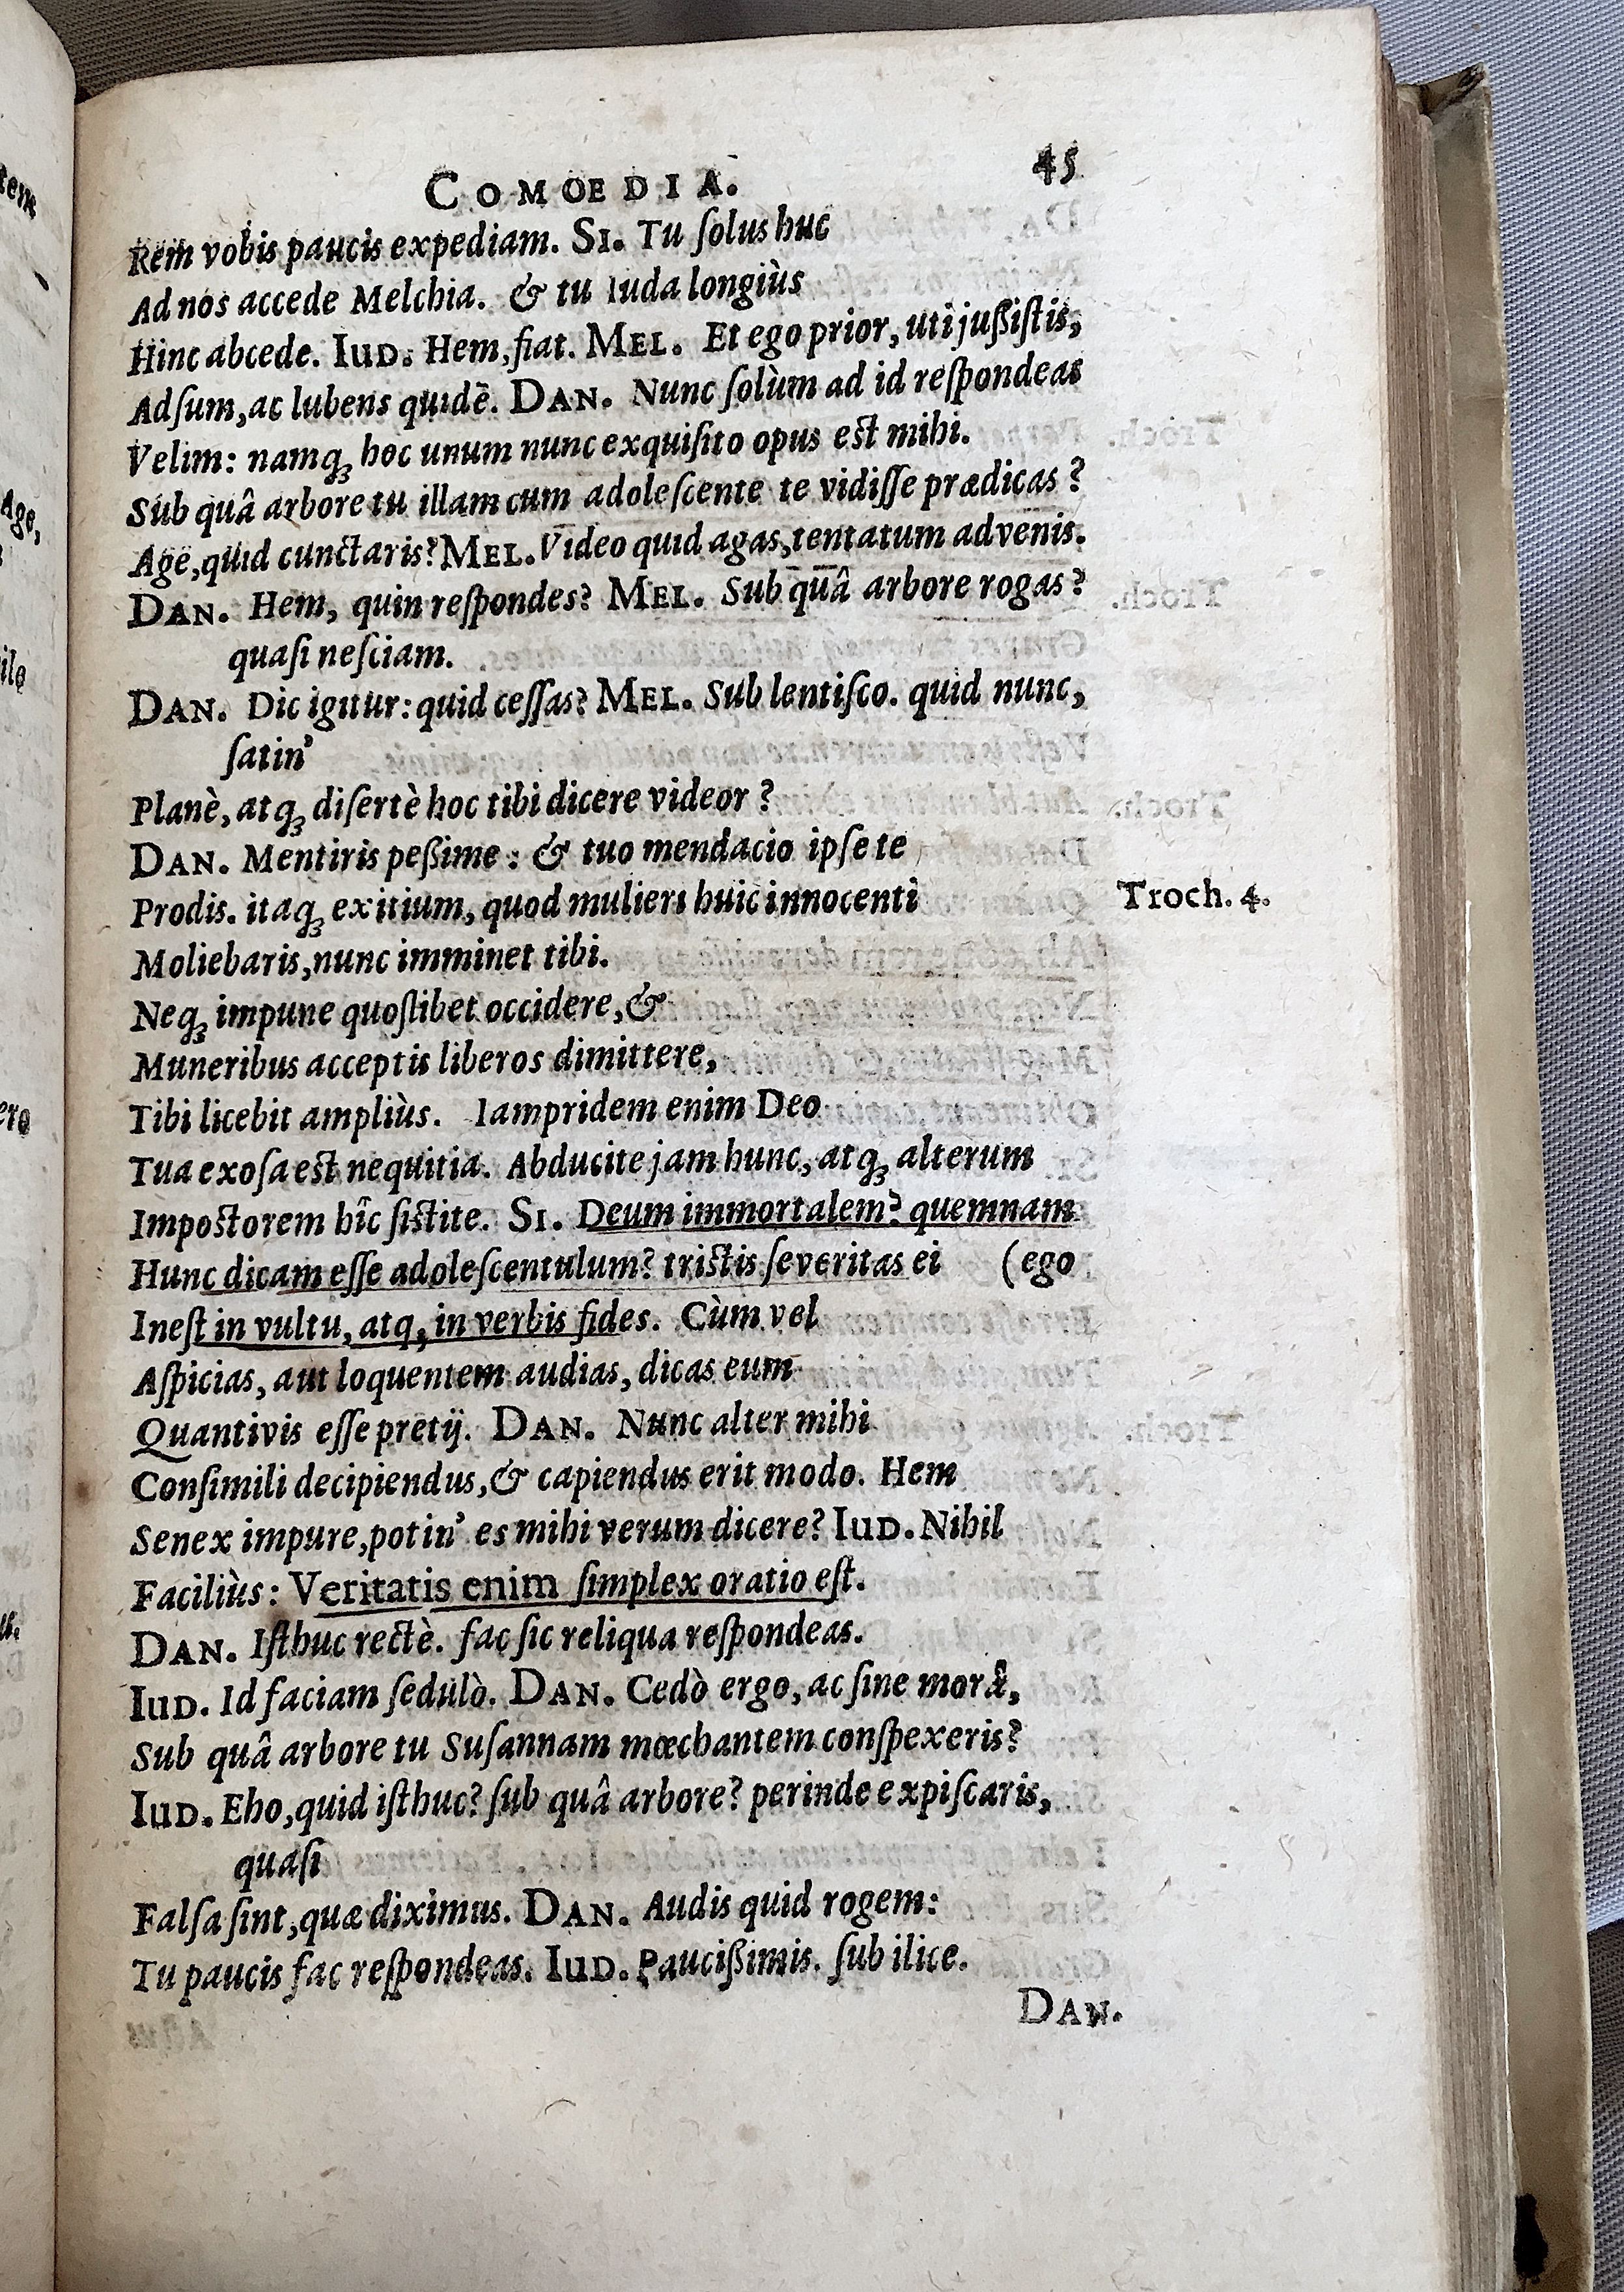 COMOEDIA. 45
Rem vobis paucis expediam. SI. Tu ſolus huc
Ad nos accede Melchia. & tu Iuda longiùs
Hinc abcede. IUD. Hem, fiat. MEL. Et ego prior, uti jußiſtis,
Adſum, ac lubens quidē. DAN. Nunc ſolùm ad id reſpondeas
Velim: namq; hoc unum nunc exquiſito opus est mihi.
Sub quâ arbore tu illam cum adoleſcente te vidiſſe prædicas?
Age, quid cunctaris? MEL. Video quid agas, tentatum advenis.
DAN. Hem, quin reſpondes? MEL. Sub quâ arbore rogas?
quaſi neſciam.
DAN. Dic igitur: quid ceſſas? MEL. Sub lentiſco. quid nunc,
ſatin'
Planè, atq; diſertè hoc tibi dicere videor?
DAN. Mentiris peßime: & tuo mendacio ipſe te
Prodis. itaq; exitium, quod mulieri huic innocenti
Troch. 4.
Moliebaris, nunc imminet tibi.
Neq; impune quoſlibet occidere, &
Muneribus acceptis liberos dimittere,
Tibi licebit ampliùs. Iampridem enim Deo
Tua exoſa est nequitia. Abducite jam hunc, atq; alterum
Impostorem hîc ſistite. SI. Deum immortalem? quemnam
Hunc dicam eſſe adoleſcentulum? tristis ſeveritas ei (ego
Ineſt in vultu, atq; in verbis fides. Cùm vel
Aſpicias, aut loquentem audias, dicas eum
Quantivis eſſe pretij. DAN. Nunc alter mihi
Conſimili decipiendus, & capiendus erit modo. Hem
Senex impure, potin' es mihi verum dicere? IUD. Nihil
Faciliùs: Veritatis enim ſimplex oratio eſt.
DAN. Iſthuc rectè. fac ſic reliqua reſpondeas.
IUD. Id faciam ſedulò. DAN. Cedò ergo, ac ſine morâ,
Sub quâ arbore tu Suſannam mœchantem conſpexeris?
IUD. Eho, quid iſthuc? ſub quâ arbore? perinde expiſcaris,
quaſi
Falſa ſint, quæ diximus. DAN. Audis quid rogem:
Tu paucis fac reſpondeas. IUD. Paucißimis. ſub ilice.
DAN.